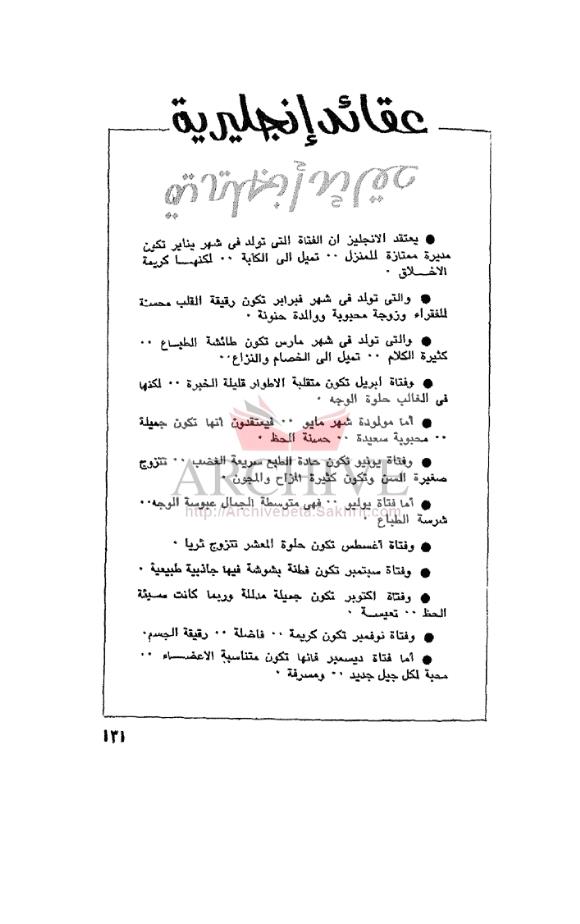 عقائد إنجليرية
عقائد إنجليرية
● يعتقد الانجليز ان الفتاة التى تولد فى شهر يناير تكون
مديرة ممتازة للمنزل ٠٠ تميل الى الكابة ٠٠ لكنهـــا كريمة
الاخـــلاق ٠
● والتى تولد فى شهر فبراير تكون رقيقة القلب محسنة
للفقراء وزوجة محبوبة ووالدة حنونة ٠
● والتى تولد فى شهر مارس تكون طائشة الطبـــاع ٠٠
كثيرة الكلام ٠٠ تميل الى الخصام والنزاع٠٠
● وفتاة ابريل تكون متقلبة الاطوار قليلة الخبرة ٠٠ لكنها
فى الغالب حلوة الوجه ٠
● أما مولودة شهر مايو ٠٠ فيعتقدون أنها تكون جميلة
٠٠ محبوبية سعيدة ٠٠ حسنة الحظ ٠
● وفتاة يونيو تكون حادة الطبع سريعة الغضب ٠٠ تتزوج
صغيرة السن وتكون كثيرة المزاح والمجون ٠
ARCHIVE
● أما فتاة يوليو ٠٠ فهى متوسطة الجمال عبوسة الوجه٠٠
http://Archivebeta.Sakhrit.com
شرسة الطباع ٠
● وفتاة أغسطس تكون حلوة المعشر تتزوج ثريا ٠
● وفتاة سبتمبر تكون فطنة بشوشة فيها جاذبية طبيعية ٠
● وفتاة اكتوبر تكون جميلة مدللة وربما كانت سـيئة
الحظ ٠٠ تعيســة ٠
● وفتاة نوفمبر تكون كريمة ٠٠ فاضلة ٠٠ رقيقة الجسم٠
● أما فتاة ديسمبر فانها تكون متناسبة الاعضـــاء ٠٠
محبة لكل جيل جديد ٠٠ ومسرفة ٠
١٣١